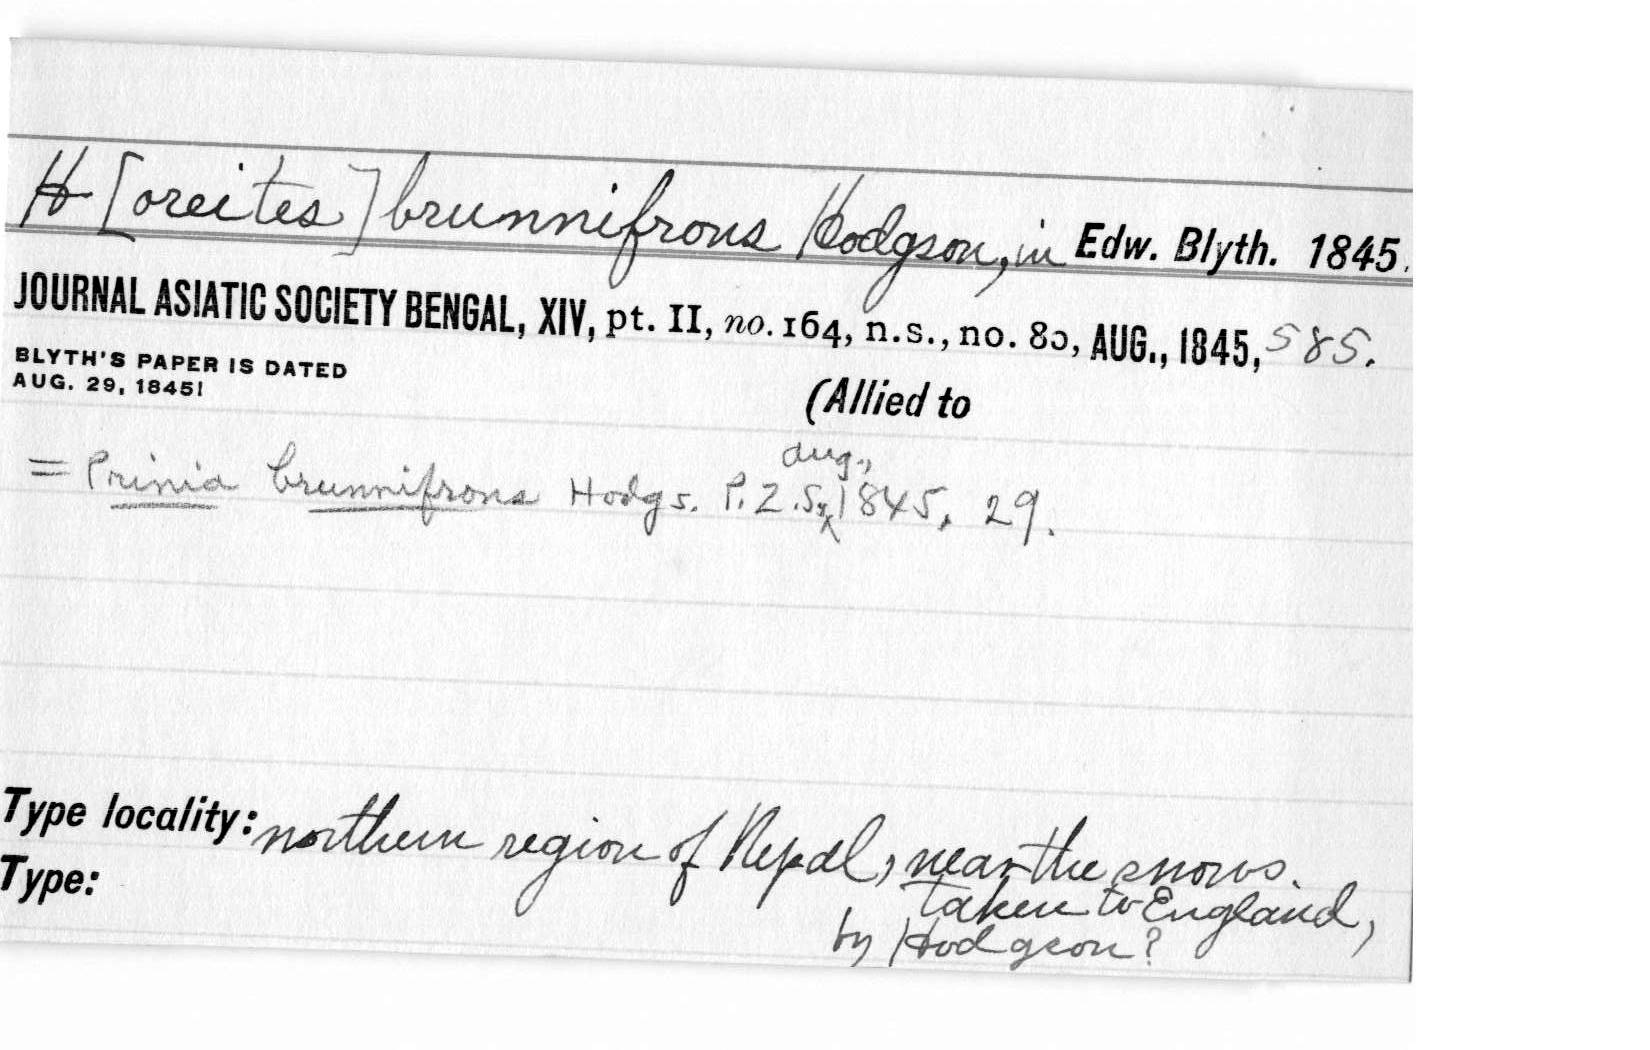 H[oreites] brunnifrons Hodgson, in Edw. Blyth. 1845.
JOURNAL ASIATIC SOCIETY BENGAL, XIV, pt. II, no. 164, n.s., no. 80, AUG., 1845, 585.
BLYTH'S PAPER IS DATED
AUG. 29, 1845!
(Allied to
aug.,
= Prinia brunnifrons Hodgs. P.Z.S., 1845, 29.
Type locality: northern region of Nepal, near the snows.
Type: taken to England,
by Hodgson?